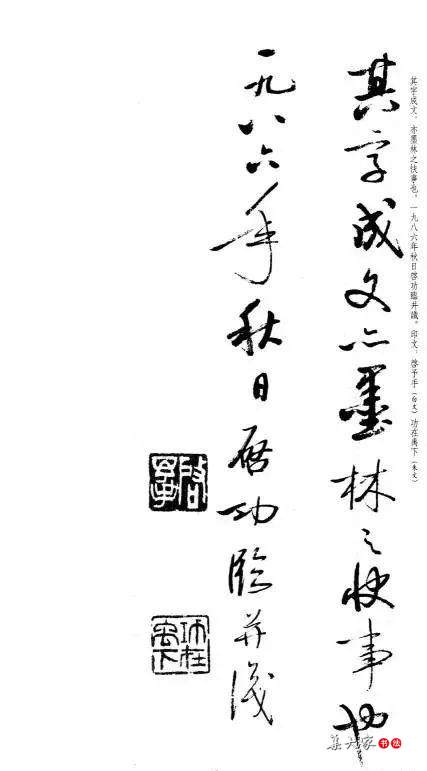 其字成文，亦墨林之快事也，一九八六年秋日啓功臨并識。印文：啓予手（白文）功在禹下（朱文）
其字成文亦墨林之快事也
一九八六年秋日啓功臨并識
啓予手
功在禹下
集大家书法